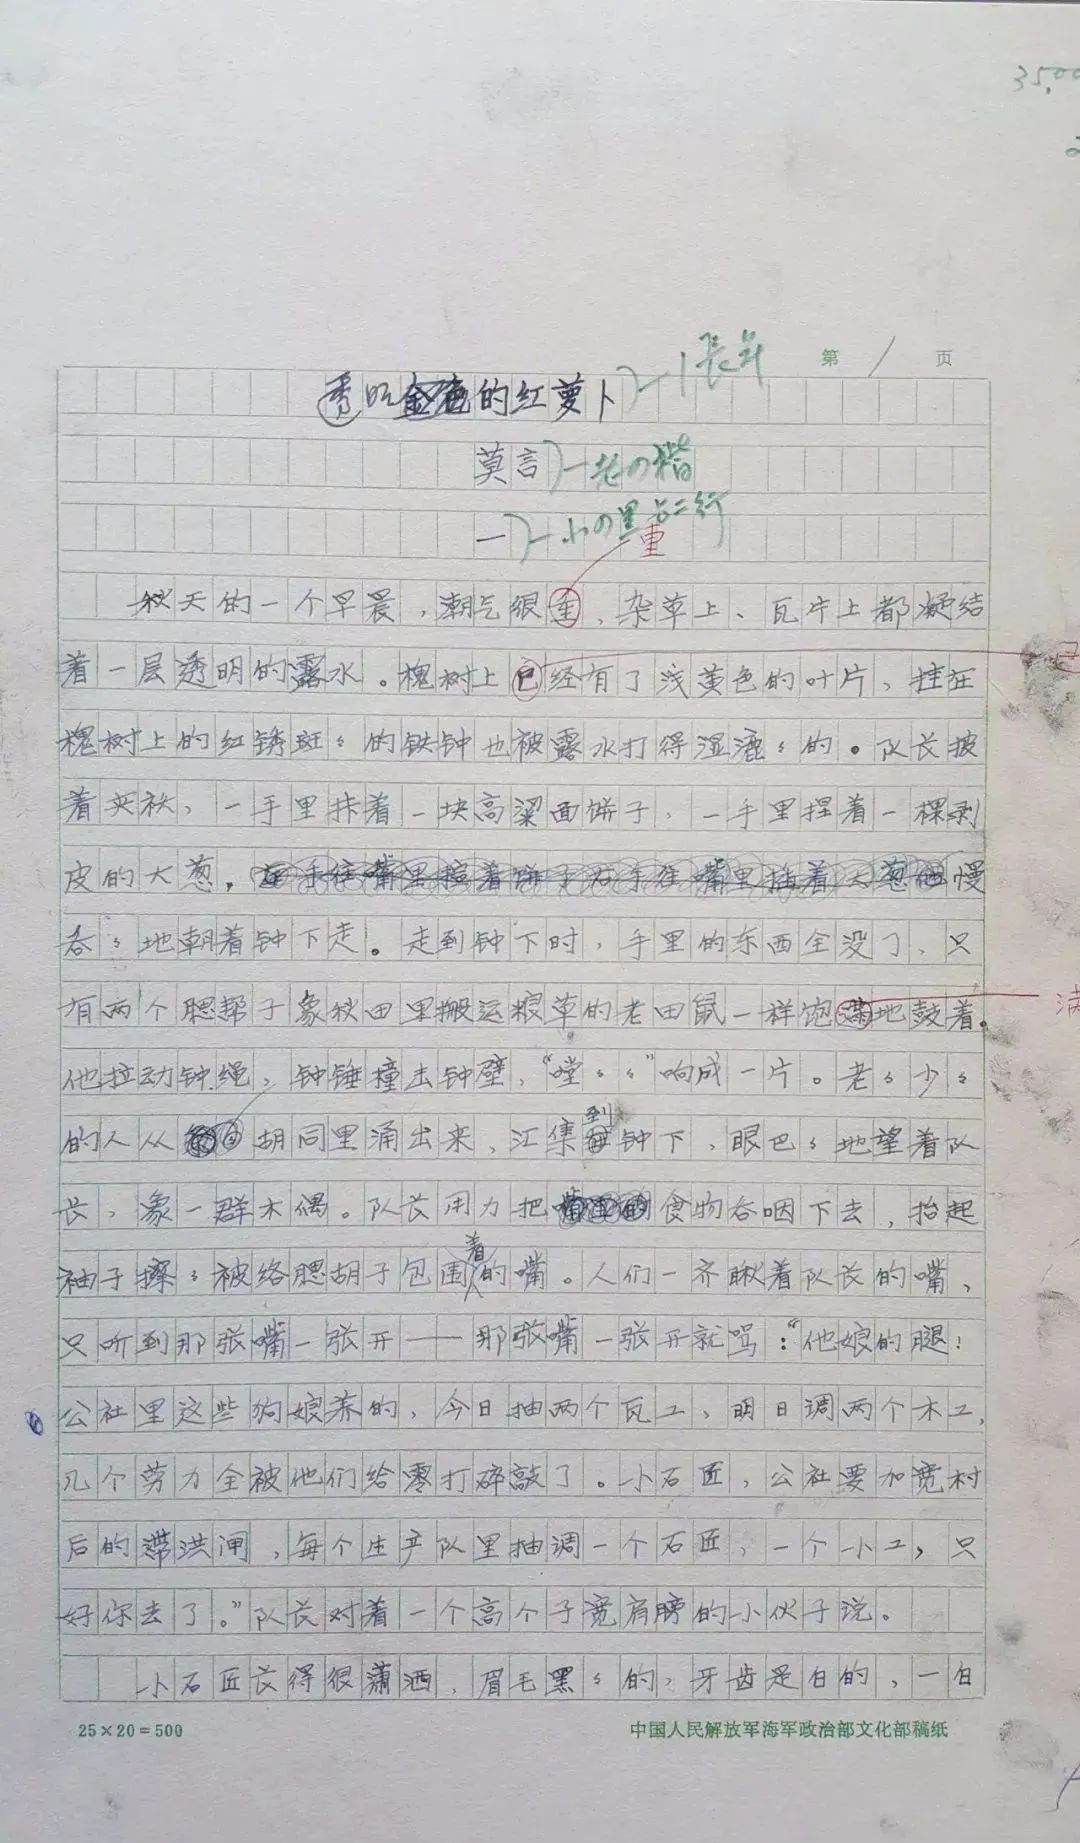 35.00
第 / 页
透明金色的红萝卜 1长牟
莫言 老の楷
一 小の黑占二行
重
秋天的一个早晨，潮气很重，杂草上、瓦片上都凝结
着一层透明的露水。槐树上已经有了浅黄色的叶片，挂在
槐树上的红锈斑々的铁钟也被露水打得湿漉々的。队长披
着夹袄，一手里拤着一块高粱面饼子，一手里捏着一棵剥
皮的大葱，慢
吞々地朝着钟下走。走到钟下时，手里的东西全没了，只
有两个腮帮子象秋田里搬运粮草的老田鼠一样饱满地鼓着。
满
他拉动钟绳，钟锤撞击钟壁，“嘡々々”响成一片。老々少々
的人从胡同里涌出来，汇集到钟下，眼巴々地望着队
长，象一群木偶。队长用力把食物吞咽下去，抬起
袖子擦々被络腮胡子包围着的嘴。人们一齐瞅着队长的嘴，
只听到那张嘴一张开——那张嘴一张开就骂：“他娘的腿！
公社里这些狗娘养的，今日抽两个瓦工，明日调两个木工，
几个劳力全被他们给零打碎敲了。小石匠，公社要加宽村
后的滞洪闸，每个生产队里抽调一个石匠，一个小工，只
好你去了。”队长对着一个高个子宽肩膀的小伙子说。
小石匠长得很潇洒，眉毛黑々的，牙齿是白的，一白
25×20=500 中国人民解放军海军政治部文化部稿纸